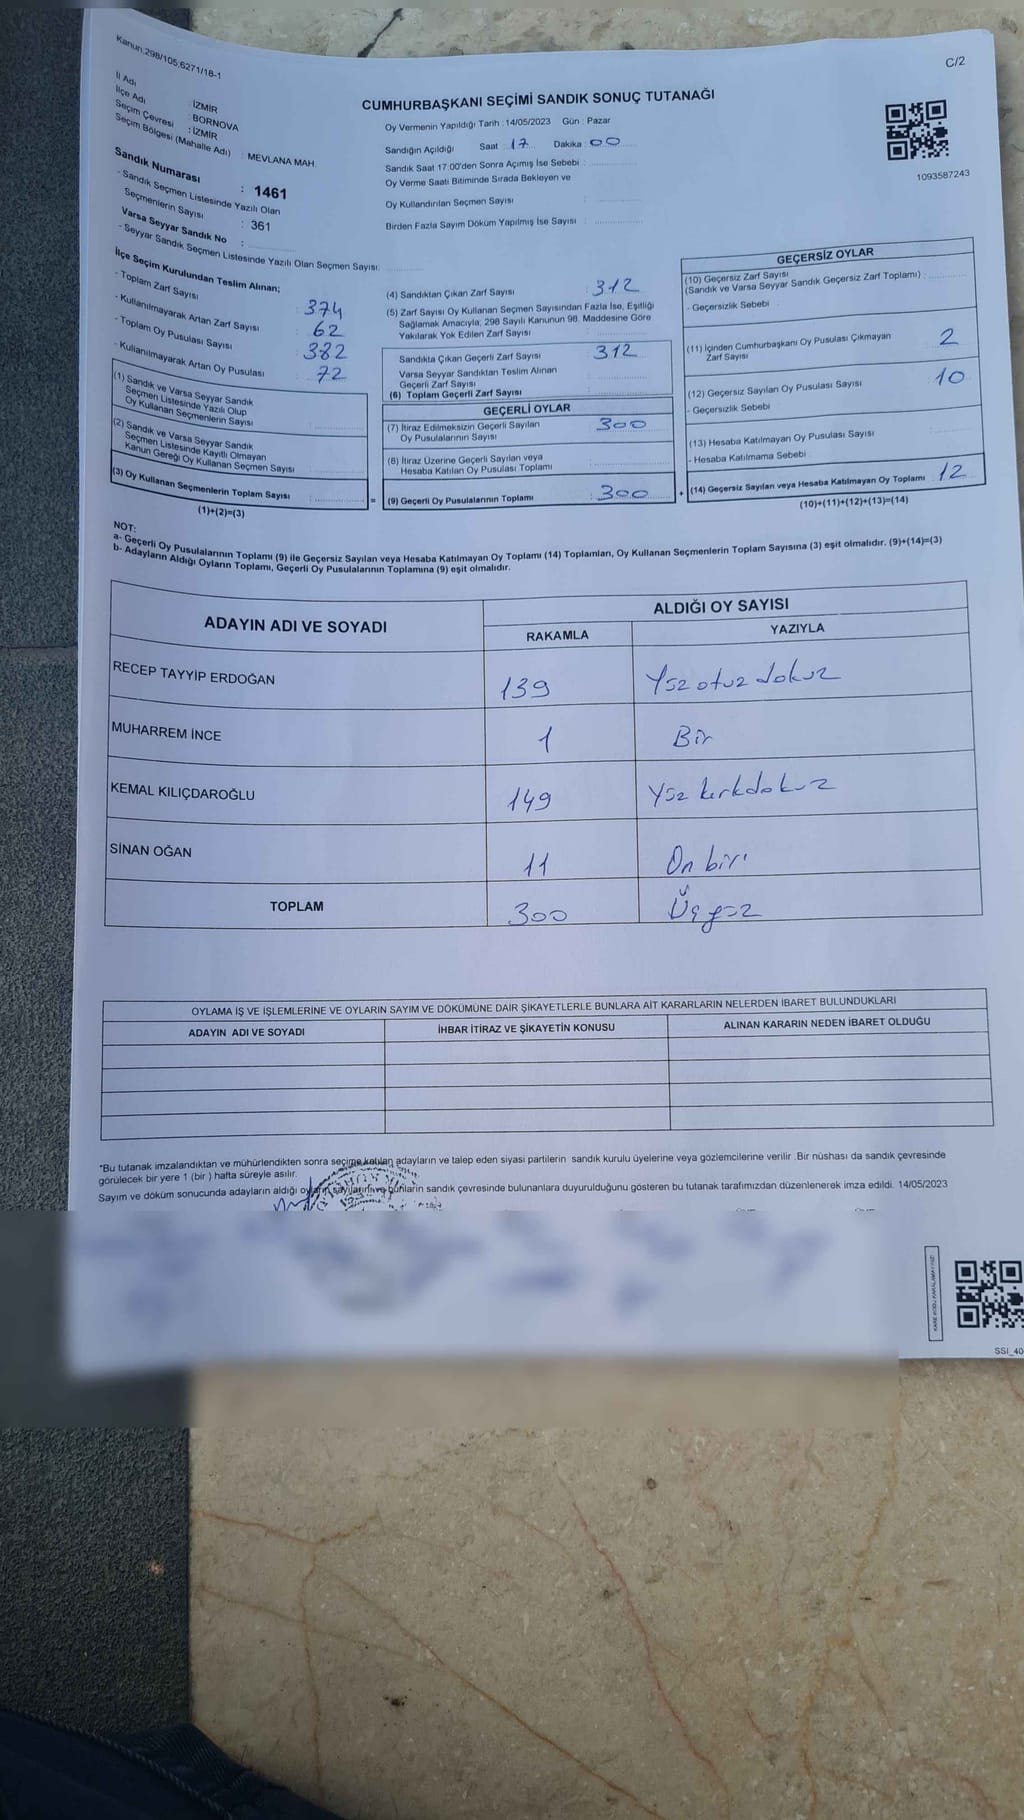 Kanun:298/105,6271/18-1
C/2
İl Adı : İZMİR
İlçe Adı : BORNOVA
Seçim Çevresi : İZMİR
Seçim Bölgesi (Mahalle Adı) : MEVLANA MAH.
Sandık Numarası : 1461
- Sandık Seçmen Listesinde Yazılı Olan
Seçmenlerin Sayısı : 361
Varsa Seyyar Sandık No :
- Seyyar Sandık Seçmen Listesinde Yazılı Olan Seçmen Sayısı:
CUMHURBAŞKANI SEÇİMİ SANDIK SONUÇ TUTANAĞI
Oy Vermenin Yapıldığı Tarih : 14/05/2023 Gün : Pazar
Sandığın Açıldığı Saat : 17 Dakika : 00
Sandık Saat 17:00'den Sonra Açımış İse Sebebi :
Oy Verme Saati Bitiminde Sırada Bekleyen ve
Oy Kullandırılan Seçmen Sayısı :
Birden Fazla Sayım Döküm Yapılmış İse Sayısı :
1093587243
İlçe Seçim Kurulundan Teslim Alınan;
- Toplam Zarf Sayısı : 374
- Kullanılmayarak Artan Zarf Sayısı : 62
- Toplam Oy Pusulası Sayısı : 382
- Kullanılmayarak Artan Oy Pusulası : 72
(1) Sandık ve Varsa Seyyar Sandık
Seçmen Listesinde Yazılı Olup
Oy Kullanan Seçmenlerin Sayısı :
(2) Sandık ve Varsa Seyyar Sandık
Seçmen Listesinde Kayıtlı Olmayan
Kanun Gereği Oy Kullanan Seçmen Sayısı :
(3) Oy Kullanan Seçmenlerin Toplam Sayısı : =
(1)+(2)=(3)
(4) Sandıktan Çıkan Zarf Sayısı : 312
(5) Zarf Sayısı Oy Kullanan Seçmen Sayısından Fazla İse, Eşitliği
Sağlamak Amacıyla, 298 Sayılı Kanunun 98. Maddesine Göre
Yakılarak Yok Edilen Zarf Sayısı :
Sandıkta Çıkan Geçerli Zarf Sayısı : 312
Varsa Seyyar Sandıktan Teslim Alınan
Geçerli Zarf Sayısı :
(6) Toplam Geçerli Zarf Sayısı :
GEÇERLİ OYLAR
(7) İtiraz Edilmeksizin Geçerli Sayılan
Oy Pusulalarının Sayısı : 300
(8) İtiraz Üzerine Geçerli Sayılan veya
Hesaba Katılan Oy Pusulası Toplamı :
(9) Geçerli Oy Pusulalarının Toplamı : 300 +
GEÇERSİZ OYLAR
(10) Geçersiz Zarf Sayısı
(Sandık ve Varsa Seyyar Sandık Geçersiz Zarf Toplamı) :
- Geçersizlik Sebebi :
(11) İçinden Cumhurbaşkanı Oy Pusulası Çıkmayan
Zarf Sayısı : 2
(12) Geçersiz Sayılan Oy Pusulası Sayısı : 10
- Geçersizlik Sebebi :
(13) Hesaba Katılmayan Oy Pusulası Sayısı :
- Hesaba Katılmama Sebebi :
(14) Geçersiz Sayılan veya Hesaba Katılmayan Oy Toplamı : 12
(10)+(11)+(12)+(13)=(14)
NOT:
a- Geçerli Oy Pusulalarının Toplamı (9) ile Geçersiz Sayılan veya Hesaba Katılmayan Oy Toplamı (14) Toplamları, Oy Kullanan Seçmenlerin Toplam Sayısına (3) eşit olmalıdır. (9)+(14)=(3)
b- Adayların Aldığı Oyların Toplamı, Geçerli Oy Pusulalarının Toplamına (9) eşit olmalıdır.
ADAYIN ADI VE SOYADI ALDIĞI OY SAYISI
RAKAMLA YAZIYLA
RECEP TAYYİP ERDOĞAN 139 Yüz otuz dokuz
MUHARREM İNCE 1 Bir
KEMAL KILIÇDAROĞLU 149 Yüz kırkdokuz
SİNAN OĞAN 11 On biri
TOPLAM 300 Üç yüz
OYLAMA İŞ VE İŞLEMLERİNE VE OYLARIN SAYIM VE DÖKÜMÜNE DAİR ŞİKAYETLERLE BUNLARA AİT KARARLARIN NELERDEN İBARET BULUNDUKLARI
ADAYIN ADI VE SOYADI İHBAR İTİRAZ VE ŞİKAYETİN KONUSU ALINAN KARARIN NEDEN İBARET OLDUĞU
*Bu tutanak imzalandıktan ve mühürlendikten sonra seçime katılan adayların ve talep eden siyasi partilerin sandık kurulu üyelerine veya gözlemcilerine verilir .Bir nüshası da sandık çevresinde
görülecek bir yere 1 (bir ) hafta süreyle asılır.
Sayım ve döküm sonucunda adayların aldığı oyların sayılarını ve bunların sandık çevresinde bulunanlara duyurulduğunu gösteren bu tutanak tarafımızdan düzenlenerek imza edildi. 14/05/2023
SSI_40